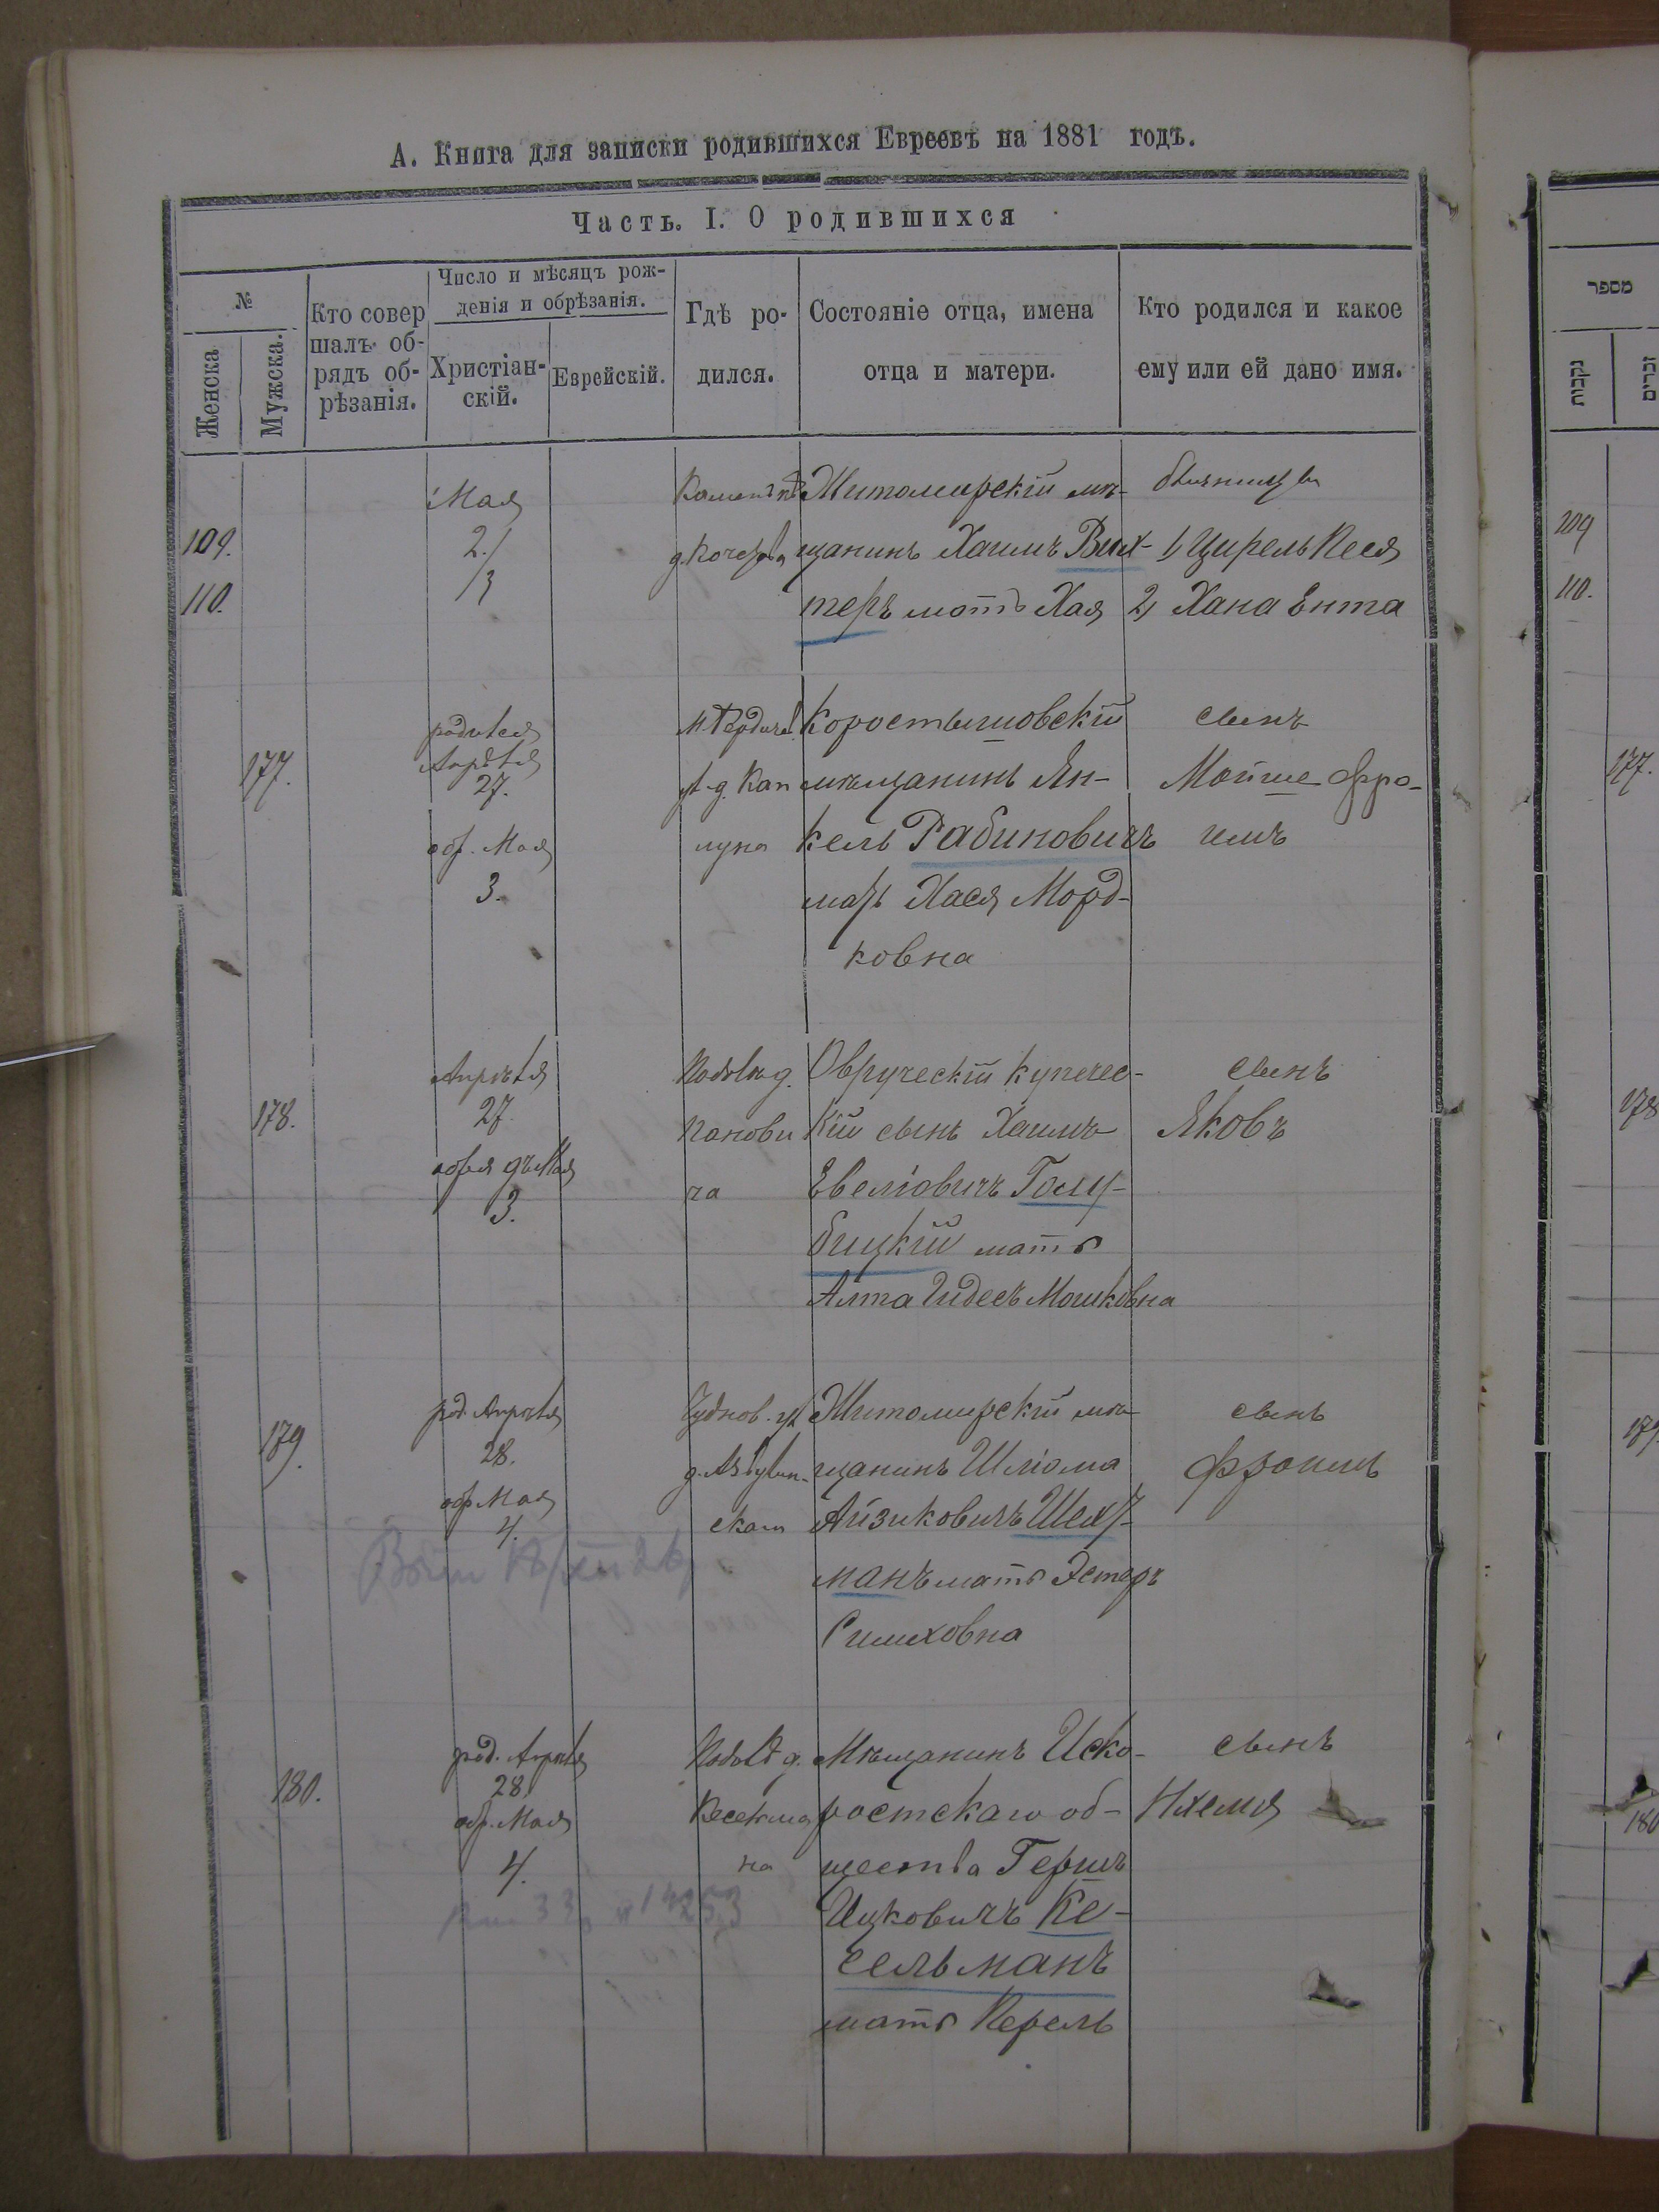 А. Книга для записки родившихся Евреевъ на 1881 годъ.
Часть. I. О родившихся
№
Женска
Мужска.
Кто совер
шалъ об-
рядъ об-
рѣзанія.
Число и мѣсяцъ рож-
денія и обрѣзанія.
Христіан-
скій.
Еврейскій.
Гдѣ ро-
дился.
Состояніе отца, имена
отца и матери.
Кто родился и какое
ему или ей дано имя.
109.
110.
Мая
2.
3
Житомирскій мѣ-
щанинъ Хаимъ Вих-
теръ мать Хая
близнецы
1, Цирель Песя
2, Хана Ента
177.
родился
Апрѣля
27.
обр. Мая
3.
Коростышовскій
мѣщанинъ Ян-
кель Рабиновичъ
мать Хася Морд-
ковна
сынъ
Мойше Фро-
имъ
178.
Апрѣля
27.
3.
Панови
ча
Овручскій купечес-
кій сынъ Хаимъ
Евелiовичъ Голу-
бицкій мать
Алта Гидесъ Мошковна
сынъ
Яковъ
179.
род. Апрѣля
28.
обр. Мая
4.
Чуднов.
ская
Житомирскій мѣ-
щанинъ Шлiома
Айзиковичъ
манъ мать Эстеръ
Симховна
сынъ
Фроимъ
180.
род. Апрѣля
28
обр. Мая
4.
на
Мѣщанинъ Иско-
ростскаго об-
щества Гершъ
Ицковичъ Ке-
сельманъ
мать Перель
сынъ
Нхемія
מספר
נקבות
זכרים
109
110.
177.
178
179
180